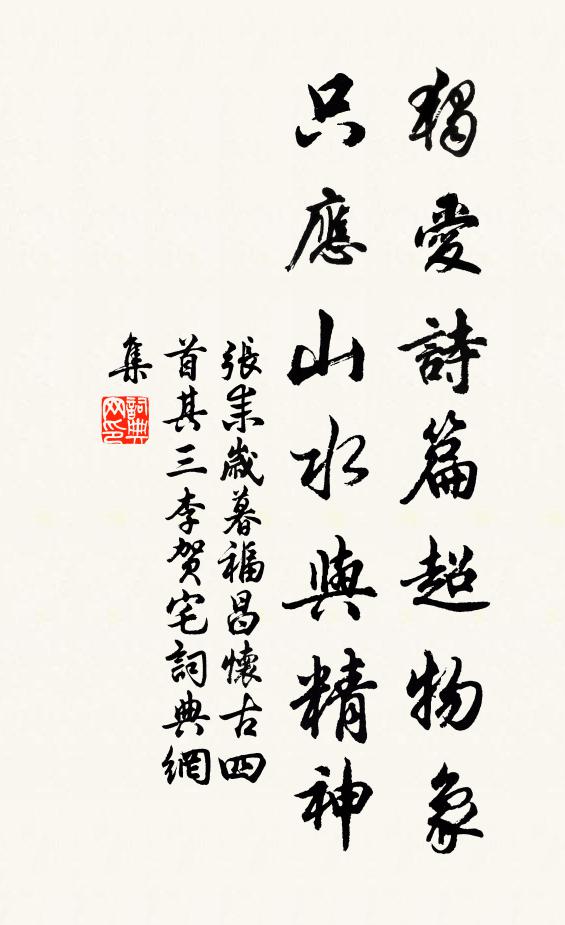 獨愛詩篇超物象
只應山水與精神
張耒歲暮福昌懷古四
首其三李賀宅詞典網
集
詞典
网印